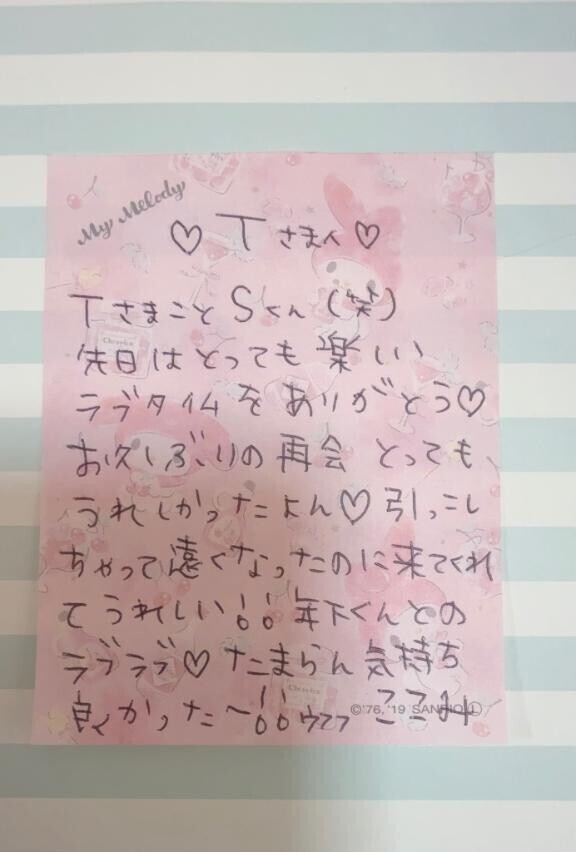 My Melody
♡ Tさまへ ♡
TさまことSくん(笑)
先日はとっても楽しい
ラブタイムをありがとう♡
お久しぶりの再会 とっても
うれしかったよん♡引っこし
ちゃって遠くなったのに来てくれ
てうれしい!! 年下くんとの
ラブラブ♡たまらん気持ち
良くかった〜!! ここみ
©'76, '19 SANRIO